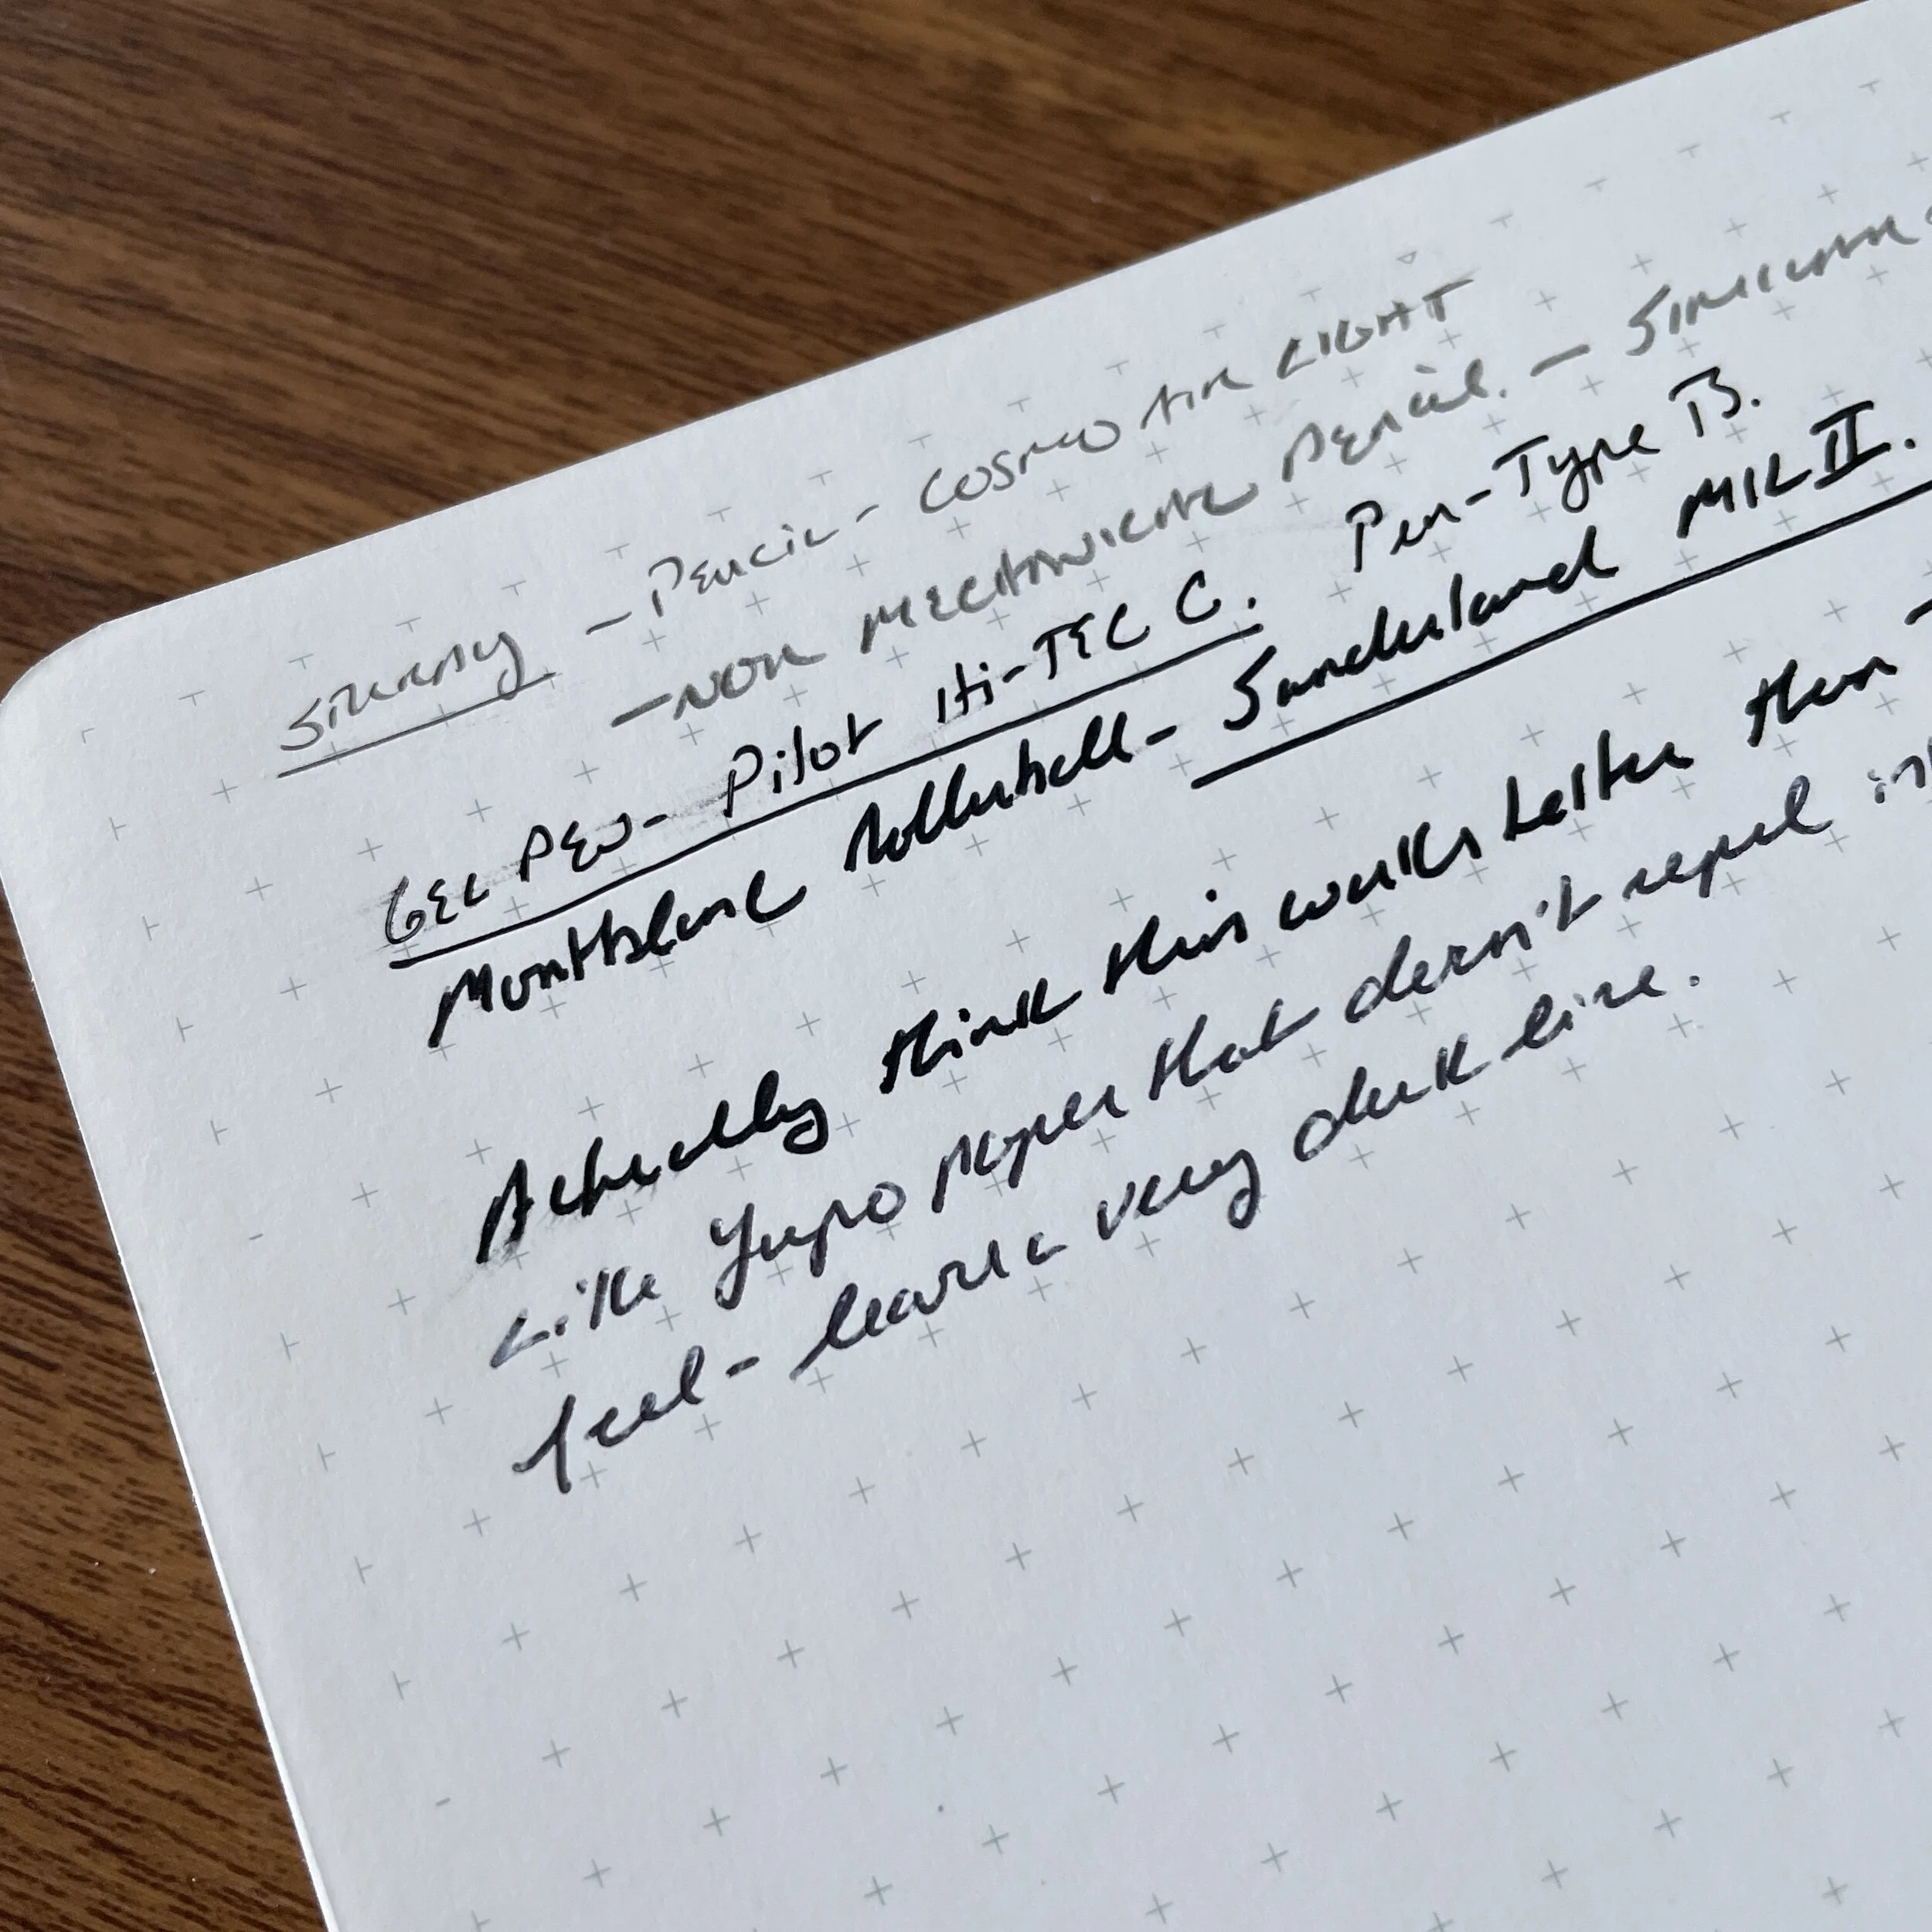 - Pencil - COSMO AIR LIGHT
- NON MECHANICAL Pencil. - SIMILAR
GEL PEN - Pilot Hi-TEC C. Pen-Type B.
Montblanc Rollerball - Sunderland MKII.
Actually think this works better then
Like Yupo paper that doesn't repel
feel - leaves a very dark line.